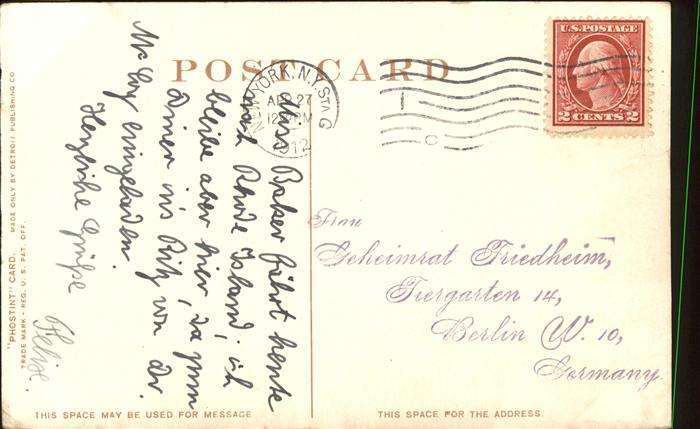 POST CARD
U.S. POSTAGE
2 CENTS 2
NEW YORK, N.Y. STA. G
APR 27
12 PM
1912
C
Miss Baker fährt heute
nach Rhode Island; ich
bleibe aber hier, da zum
Diner ins Ritz von Dr.
eingeladen.
Herzliche Grüße
Felix.
Frau
Geheimrat Friedheim,
Tiergarten 14,
Berlin W. 10,
Germany.
"PHOSTINT" CARD. MADE ONLY BY DETROIT PUBLISHING CO.
TRADE MARK - REG. U. S. PAT. OFF.
THIS SPACE MAY BE USED FOR MESSAGE
THIS SPACE FOR THE ADDRESS.